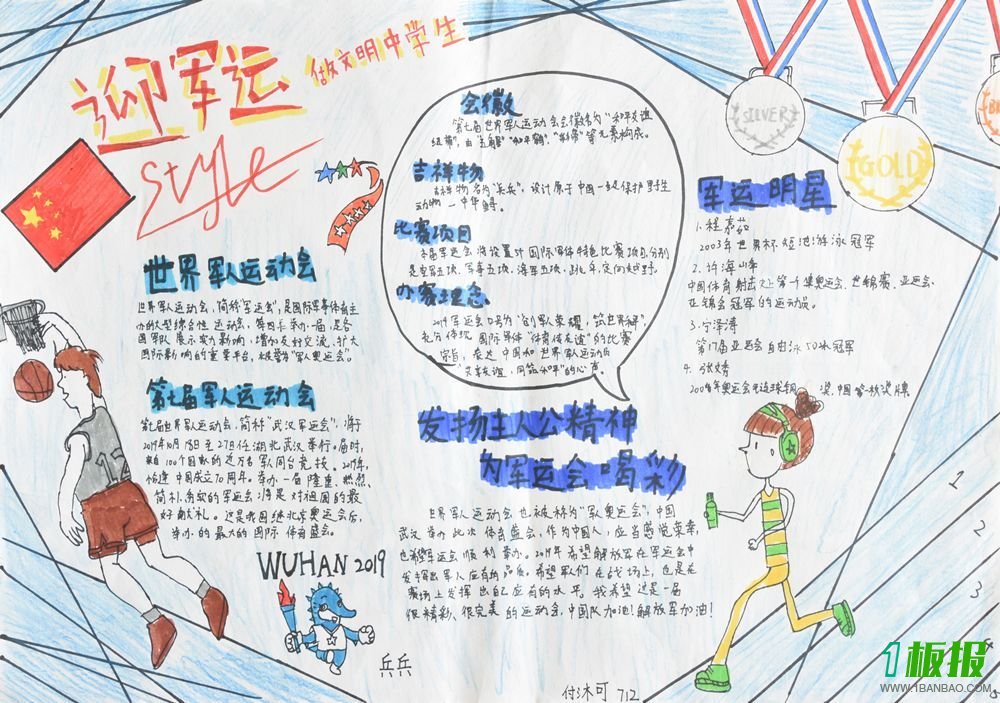 迎军运
做文明中学生
style
世界军人运动会
世界军人运动会,简称"军运会",是国际军事体育主
办的大型综合性运动会,每四年举办一届,是各
国军队展示实力影响,增加友好交流,扩大
国际影响的重要平台,被誉为"军人奥运会"。
第七届军人运动会
第七届世界军人运动会,简称"武汉军运会",将于
2019年10月18日至27日在湖北武汉举行。届时,
来自100个国家的近万名军人同台竞技。2019年,
恰逢中国成立70周年。举办一届隆重、热烈、
简朴、务实的军运会将是对祖国的最
好献礼。这是我国继北京奥运会后,
举办的最大的国际体育盛会。
WUHAN 2019
兵兵
会徽
第七届世界军人运动会会徽名为"和平友谊
纽带",由"五角星""和平鸽""彩带"等元素构成。
吉祥物
吉祥物名为"兵兵",设计原于中国一级保护野生
动物—中华鲟。
比赛项目
本届军运会将设置对国际军体特色比赛项目,分别
是空军五项、军事五项、海军五项、跳伞、定向越野。
办赛理念
2019军运会口号为"创军人荣耀,筑世界和平",
充分体现国际军体"体育传友谊"的比赛
宗旨,表达中国和世界军人运动员
"共享友谊,同筑和平"的心声。
发扬主人公精神
为军运会喝彩
世界军人运动会也被称为"军人奥运会",中国
武汉举办此次体育盛会,作为中国人,应当感觉荣幸,
也希望军运会顺利举办。2019年希望解放军在军运会中
发挥出军人应有的品质。希望军人们在战场上,也是在
赛场上发挥出自己应有的水平。我希望这是一届
很精彩、很完美的运动会,中国队加油!解放军加油!
付沐可 712
SILVER
GOLD
军运明星
1.程嘉茹
2003年世界杯短池游泳冠军
2.许海峰
中国体育射击史上第一个集奥运会、世锦赛、亚运会、
亚锦会冠军的运动员。
3.宁泽涛
第17届亚运会自由泳50米冠军
4.张文秀
2008年奥运会女链球铜奖,中国第一枚奖牌
1
2
3
1板报
WWW.1BANBAO.COM